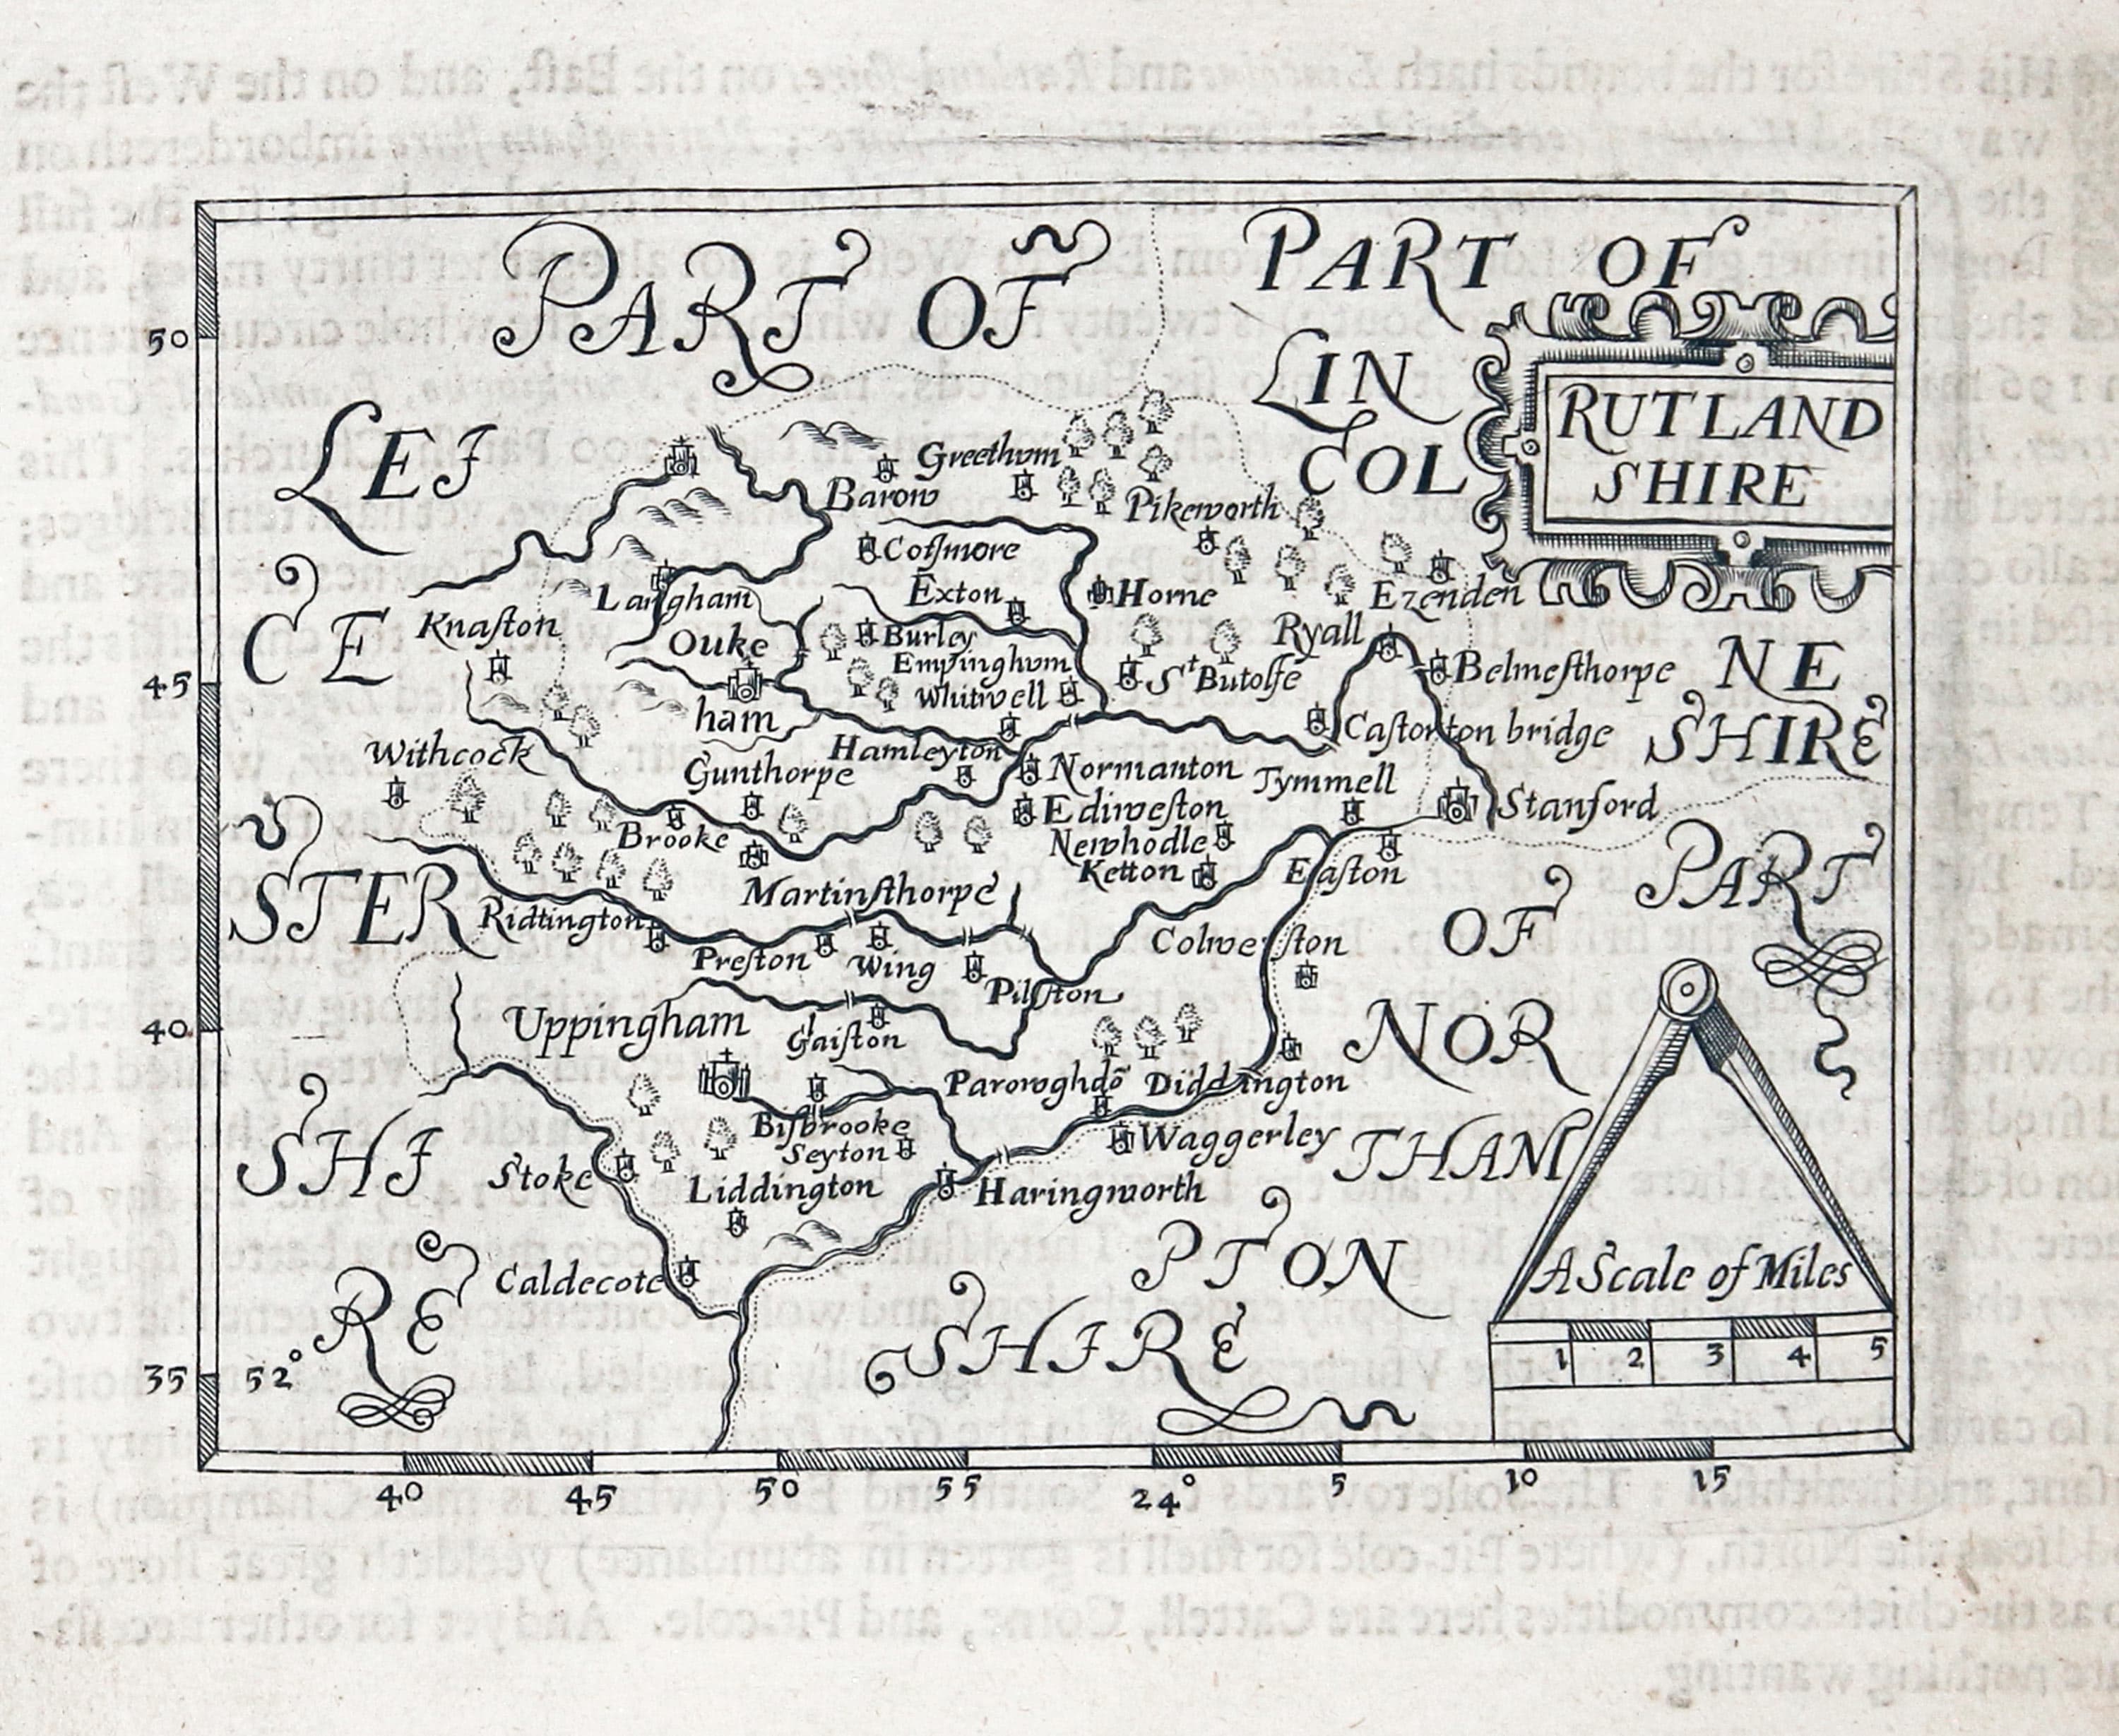 PART OF
LEI
CE
STER
SHI
RE
PART OF
LIN
COL
NE
SHIRE
RUTLAND
SHIRE
Greethum
Barow
Pikeworth
Cotsmore
Langham
Exton
Horne
Ezenden
Knaston
Ouke
ham
Burley
Empinghum
Whitwell
Ryall
St Butolfe
Belmesthorpe
Castorton bridge
Withcock
Gunthorpe
Hamleyton
Normanton
Tymmell
Ediweston
Stanford
Brooke
Newhodle
Ketton
Easton
Martinsthorpe
Ridtington
Preston
Wing
Pilston
Colweston
Uppingham
Gaiston
Parowghdō
Diddington
Bisbrooke
Seyton
Waggerley
Stoke
Liddington
Haringworth
Caldecote
PART
OF
NOR
THAM
PTON
SHIRE
A Scale of Miles
1 2 3 4 5
50
45
40
35 52°
40 45 50 55 24° 5 10 15